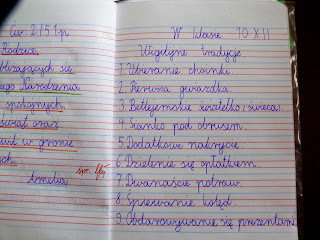 Ćw. 2 151p.
Rodzice,
zbliżających się
ego Narodzenia
spokojnych,
świąt oraz
w gronie
ych.
Amelia
W klasie 10 XII
Wigilijne tradycje.
1. Ubieranie choinki.
2. Pierwsza gwiazdka.
3. Betlejemskie światełko (świeca).
4. Sianko pod obrusem.
5. Dodatkowe nakrycie.
6. Dzielenie się opłatkiem.
7. Dwanaście potraw.
8. Śpiewanie kolęd.
9. Obdarowywanie się prezentami